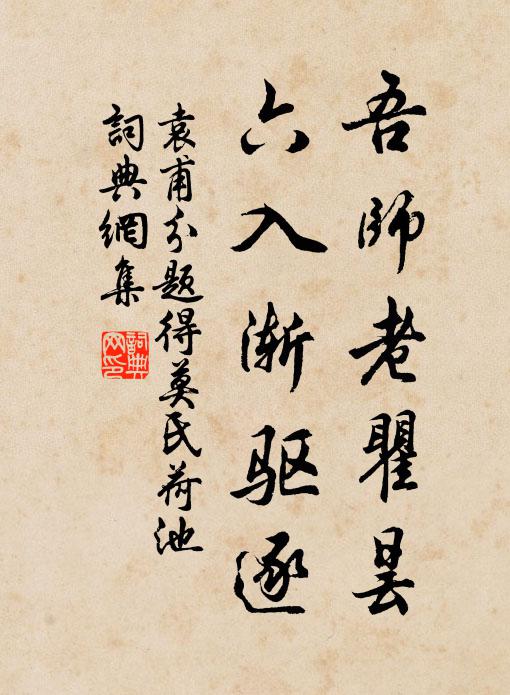 吾师老瞿昙
六入渐驱逐
袁甫分题得莫氏荷池
词典網集
詞典
网印